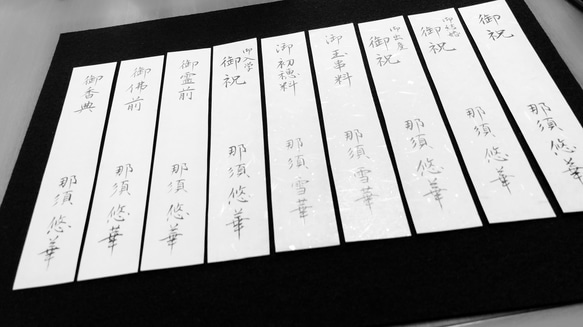 御祝
那須悠華
御結婚
御祝
那須悠華
御出産
御祝
那須悠華
御玉串料
那須雪華
御初穂料
那須雪華
御入学
御祝
那須悠華
御霊前
那須悠華
御佛前
那須悠華
御香典
那須悠華